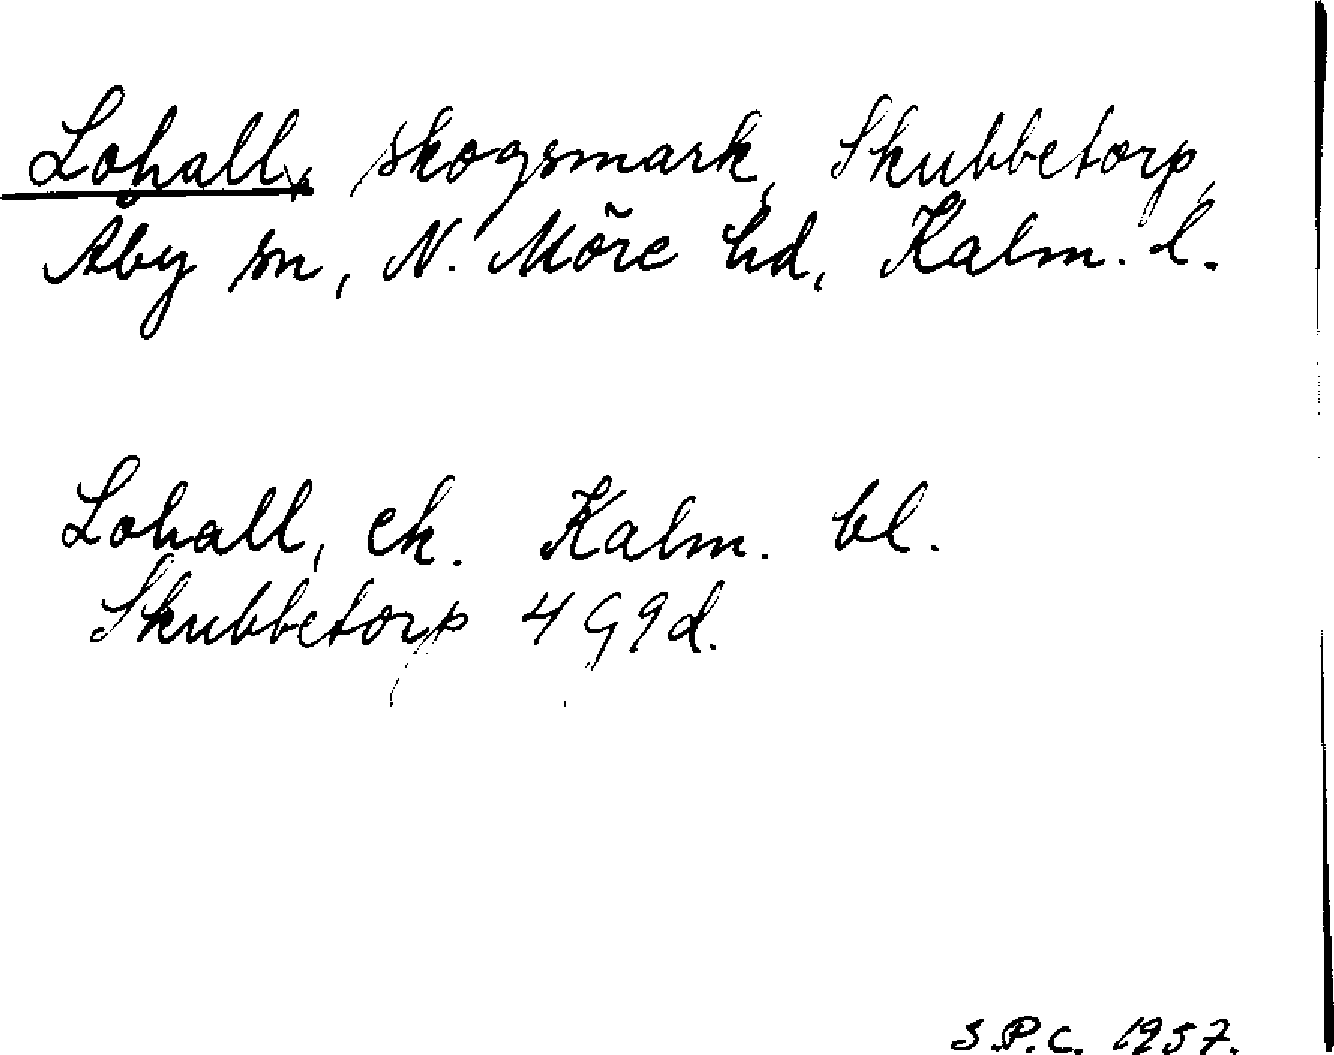 Lohall, skogsmark, Skubbetorp,
Åby sn, N. Möre hd, Kalm. l.
Lohall, ek. Kalm. bl.
Skubbetorp 4 G 9 d.
S.P.C. 1957.